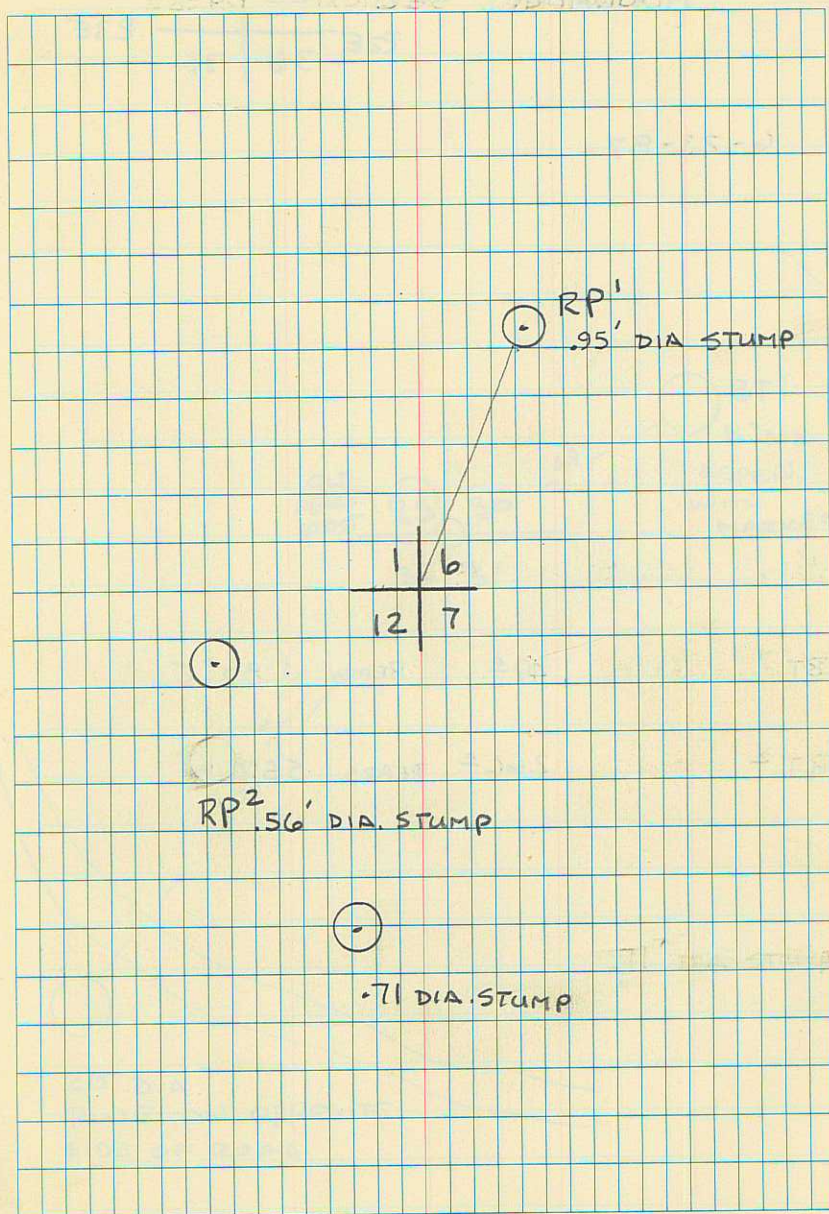 RP¹
.95' DIA STUMP
1 6
12 7
RP² .56' DIA. STUMP
.71 DIA. STUMP